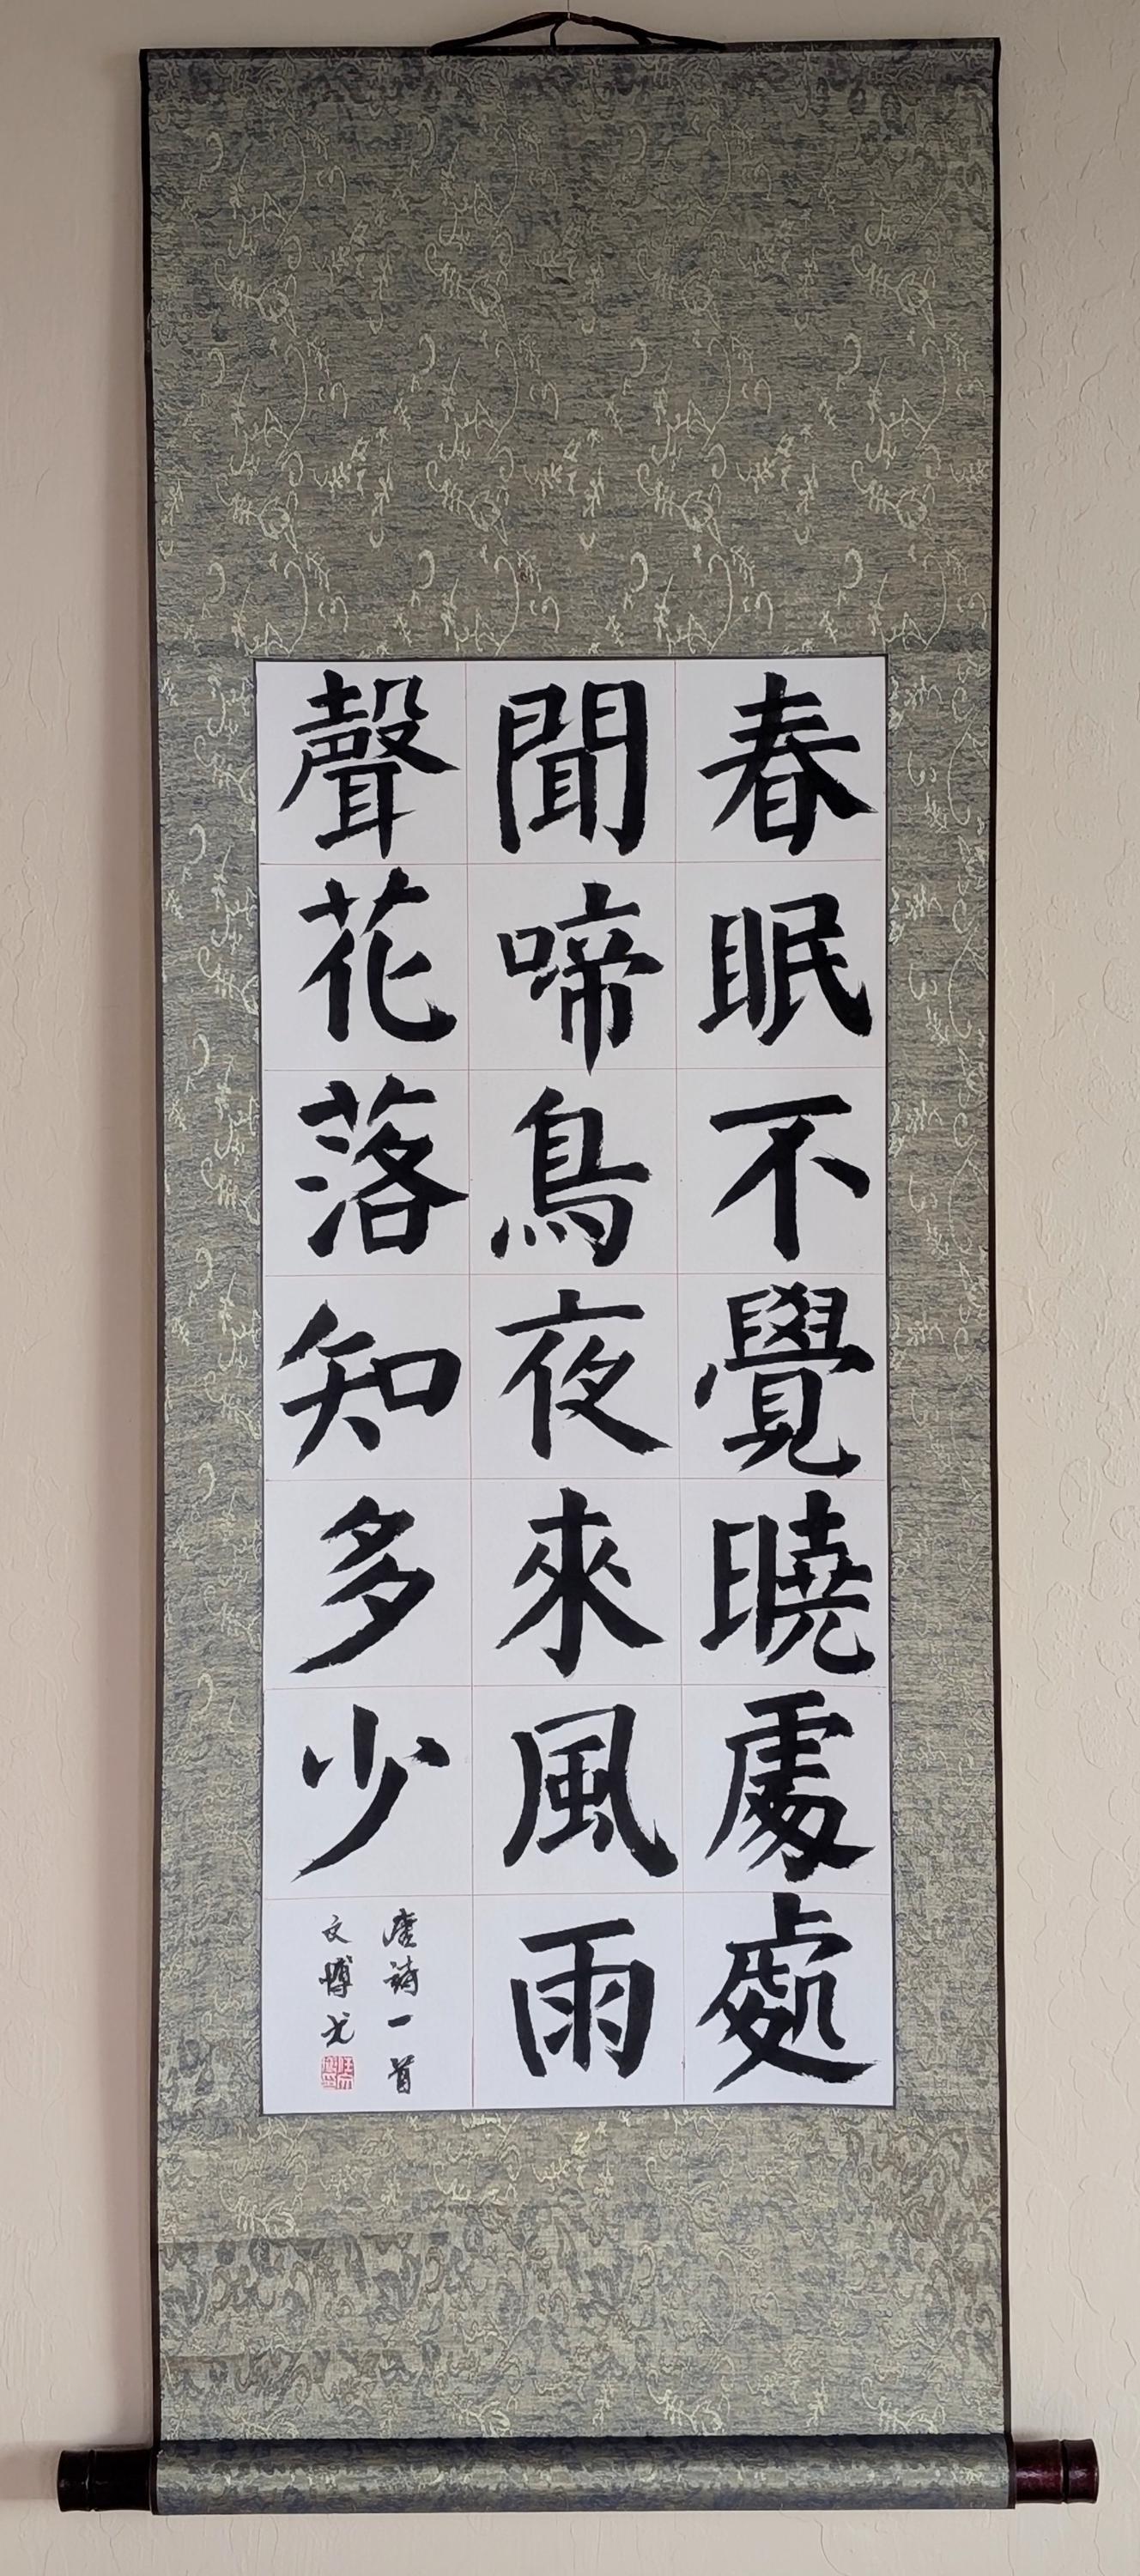 春眠不覺曉處處
聞啼鳥夜來風雨
聲花落知多少
唐詩一首
文博戈